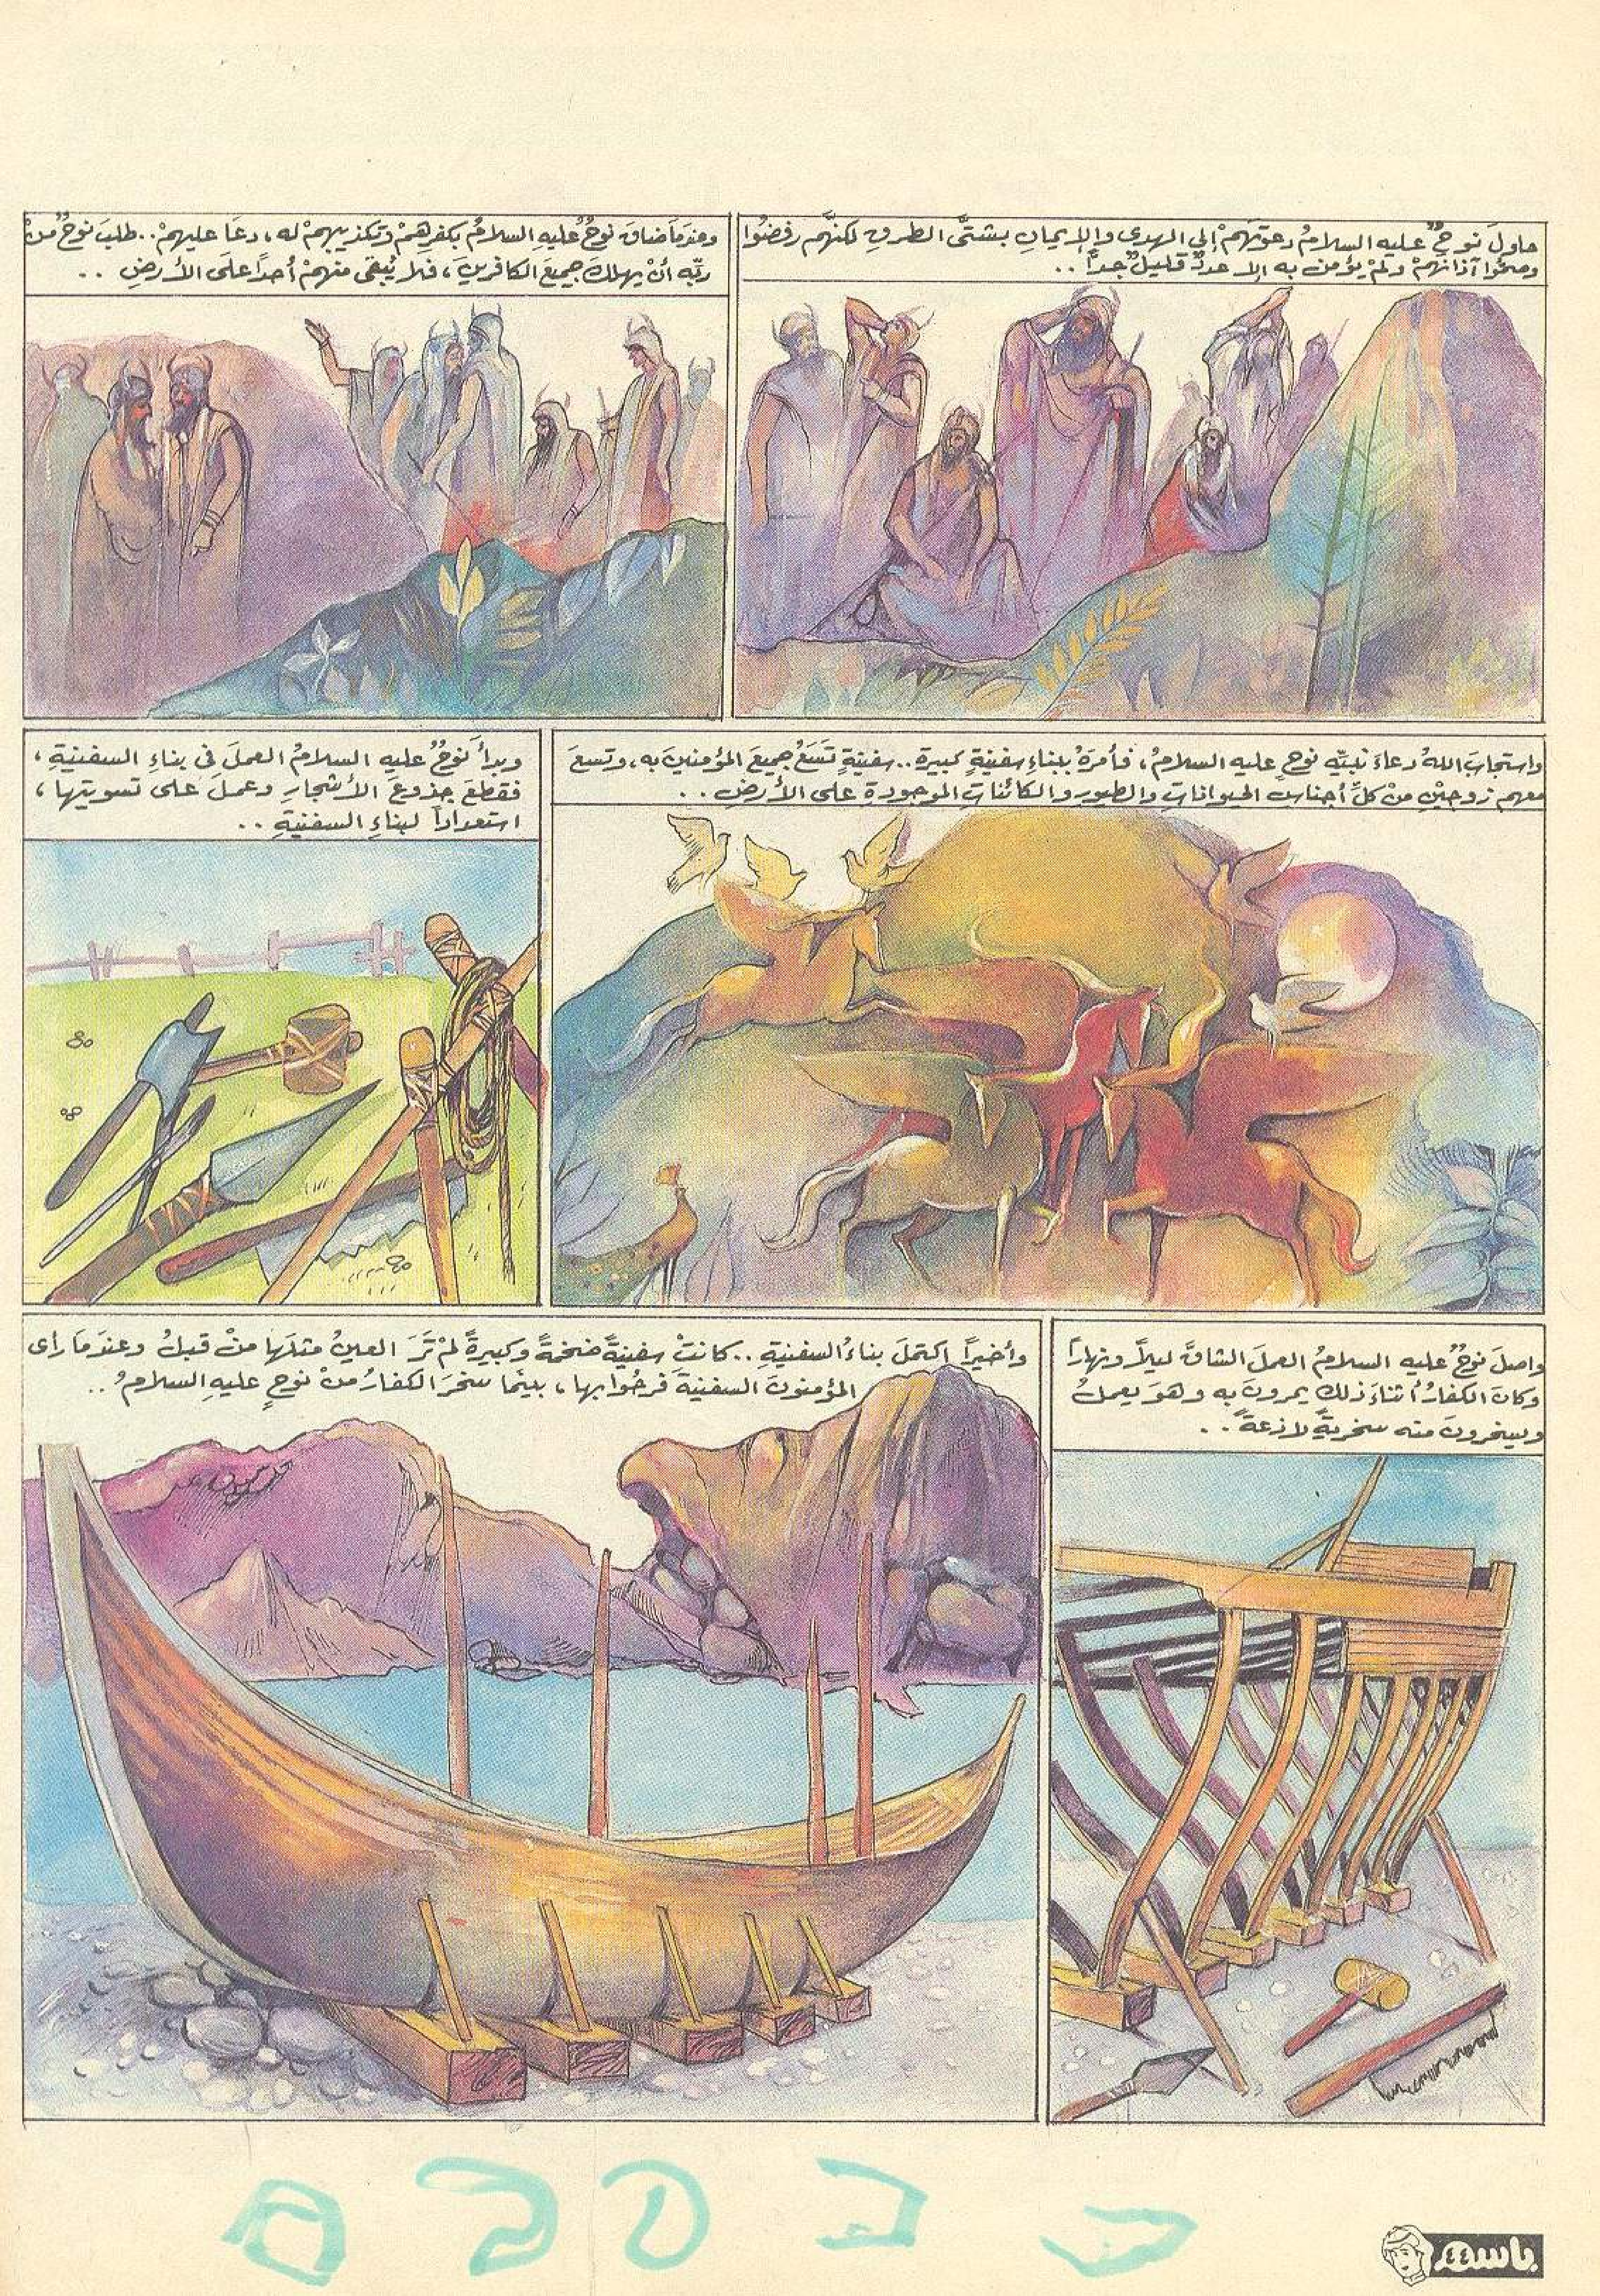 حاولَ نوحٌ عليه السلامُ دعوتَهمْ إلى الهدى والإيمانِ بشتَّى الطرقِ لكنَّهم رفضُوا
وصمُّوا آذانَهمْ ولمْ يؤمنْ به إلا عددٌ قليلٌ جداً ..
وعندمَا ضاقَ نوحٌ عليهِ السلامُ بكفرِهمْ وتكذيبِهمْ له، دعَا عليهمْ .. طلبَ نوحٌ منْ
ربِّه أنْ يهلكَ جميعَ الكافرينَ، فلا يُبقى منهمْ أحداً علَى الأرضِ ..
واستجابَ اللهُ دعاءَ نبيِّه نوحٍ عليه السلامُ، فأمرَهُ ببناءِ سفينةٍ كبيرةٍ .. سفينةٍ تَسَعُ جميعَ المؤمنينَ به، وتسعَ
معهم زوجيْنِ منْ كلِّ أجناسِ الحيواناتِ والطيورِ والكائناتِ الموجودةِ على الأرضِ ..
وبدأَ نوحٌ عليهِ السلامُ العملَ في بناءِ السفينةِ،
فقطعَ جذوعَ الأشجارِ وعملَ على تسويتِها،
استعداداً لبناءِ السفينةِ ..
واصلَ نوحٌ عليه السلامُ العملَ الشاقَّ ليلاً ونهاراً
وكانَ الكفارُ أثناءَ ذلك يمرونَ به وهوَ يعملُ
ويسخرونَ منه سخريةً لاذعةً ..
وأخيراً اكتملَ بناءُ السفينةِ .. كانتْ سفينةً ضخمةً وكبيرةً لمْ تَرَ العينُ مثلَها منْ قبلُ وعندمَا رأى
المؤمنونَ السفينةَ فرحُوا بها، بينمَا سخرَ الكفارُ منْ نوحٍ عليهِ السلامُ ..
باسم